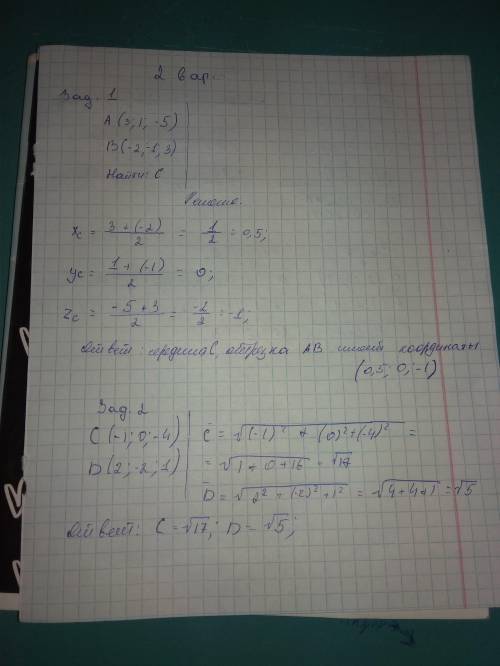 2 вар.
Зад. 1
A (3, 1, -5)
B (-2, -1, 3)
Найти: C
Решение.
xc = 3 + (-2) / 2 = 1 / 2 = 0,5;
yc = 1 + (-1) / 2 = 0;
zc = -5 + 3 / 2 = -2 / 2 = -1;
Ответ: середина отрезка AB имеет координаты
(0,5; 0; -1)
Зад. 2
C (-1; 0; -4)
D (2; -2; 1)
C = √(-1)² + (0)² + (-4)² =
= √1 + 0 + 16 = √17
D = √2² + (-2)² + 1² = √4 + 4 + 1 = √5
Ответ: C = √17; D = √5;